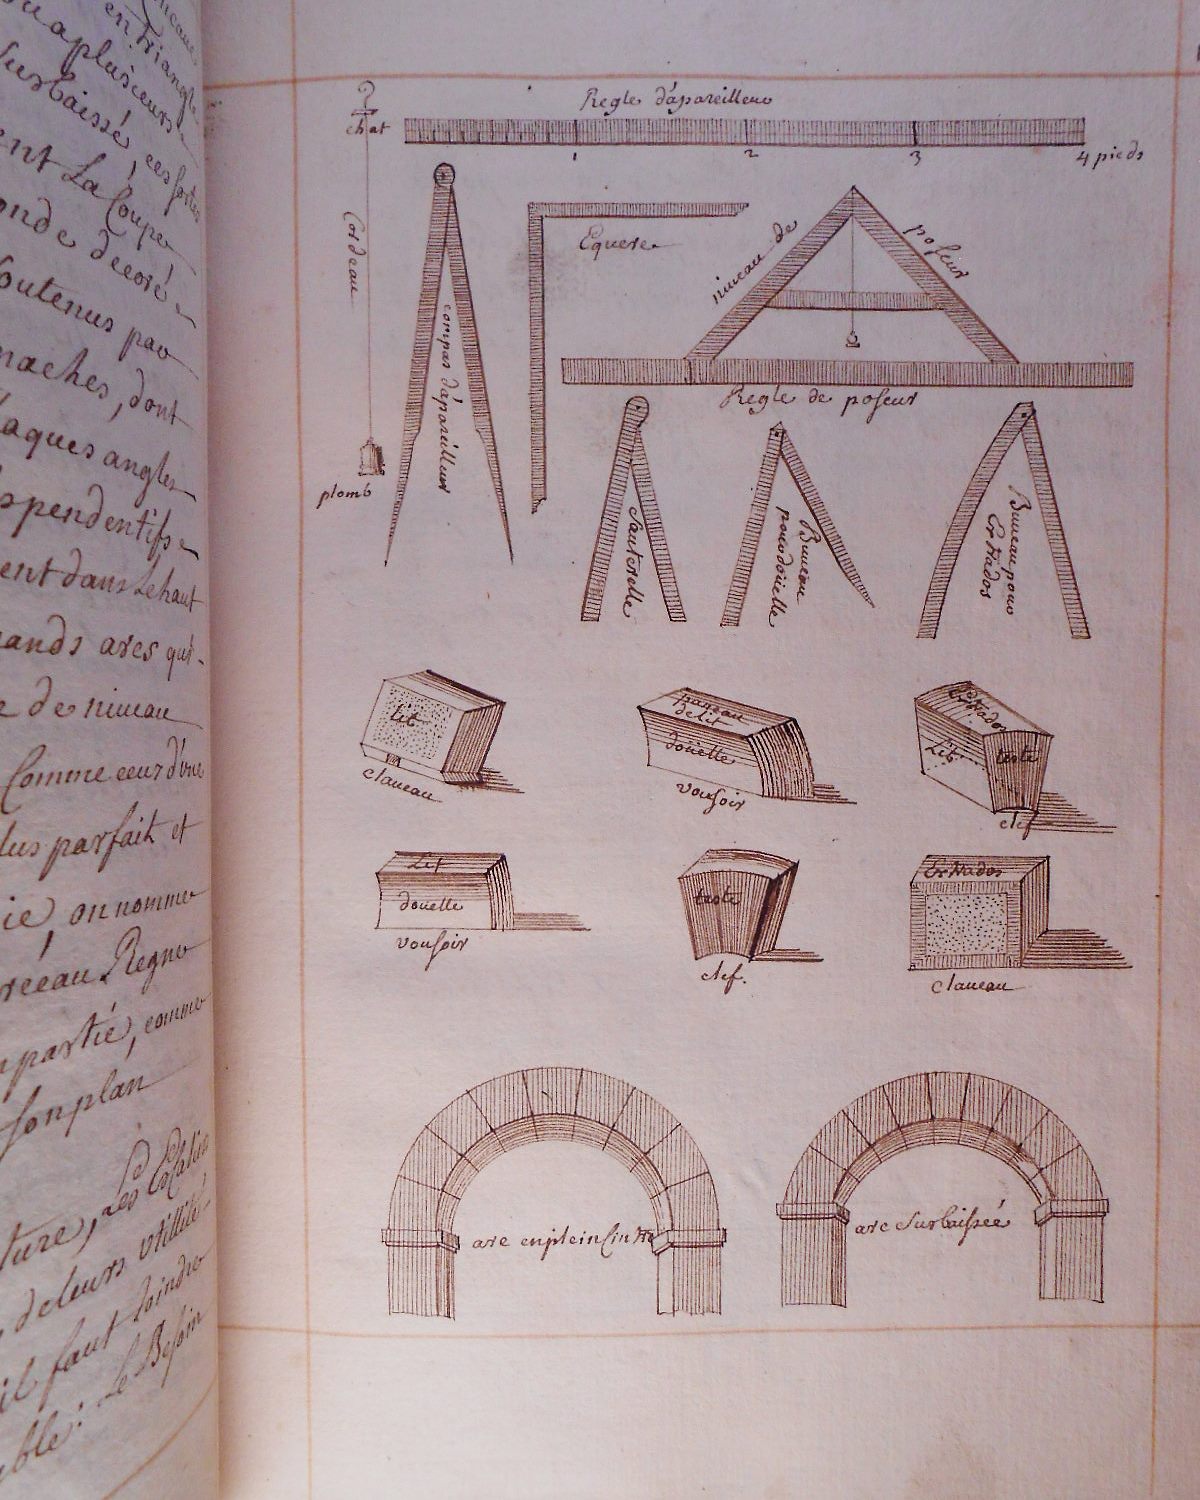 en triangle
ou a plusieurs
Surbaissé, ces sortes
ent La Coupe
onde decoré
outenus par
naches, dont
aques angles
spendentifs
ent dans Lehaut
ands arcs qui
e de niveau
Comme ceux d'une
lus parfait et
ie, on nomme
receau Regne
partie, comme
son plan
ture, Les
de leurs utillité
il faut Joindre
Le Besoin
ble:
Regle d'apareilleur
chat
1 2 3 4 pieds
Cordeau
plomb
compas d'apareilleur
Equere
niveau de poseur
Regle de poseur
Sauterelle
Buveau pour doüelle
Buveau pour Extrados
lit
claueau
panneau de lit
doüelle
vousoir
Extrados
Lit
teste
clef
Lit
doüelle
vousoir
teste
clef.
Extrados
claueau
arc en plein Cintre
arc Surbaissée